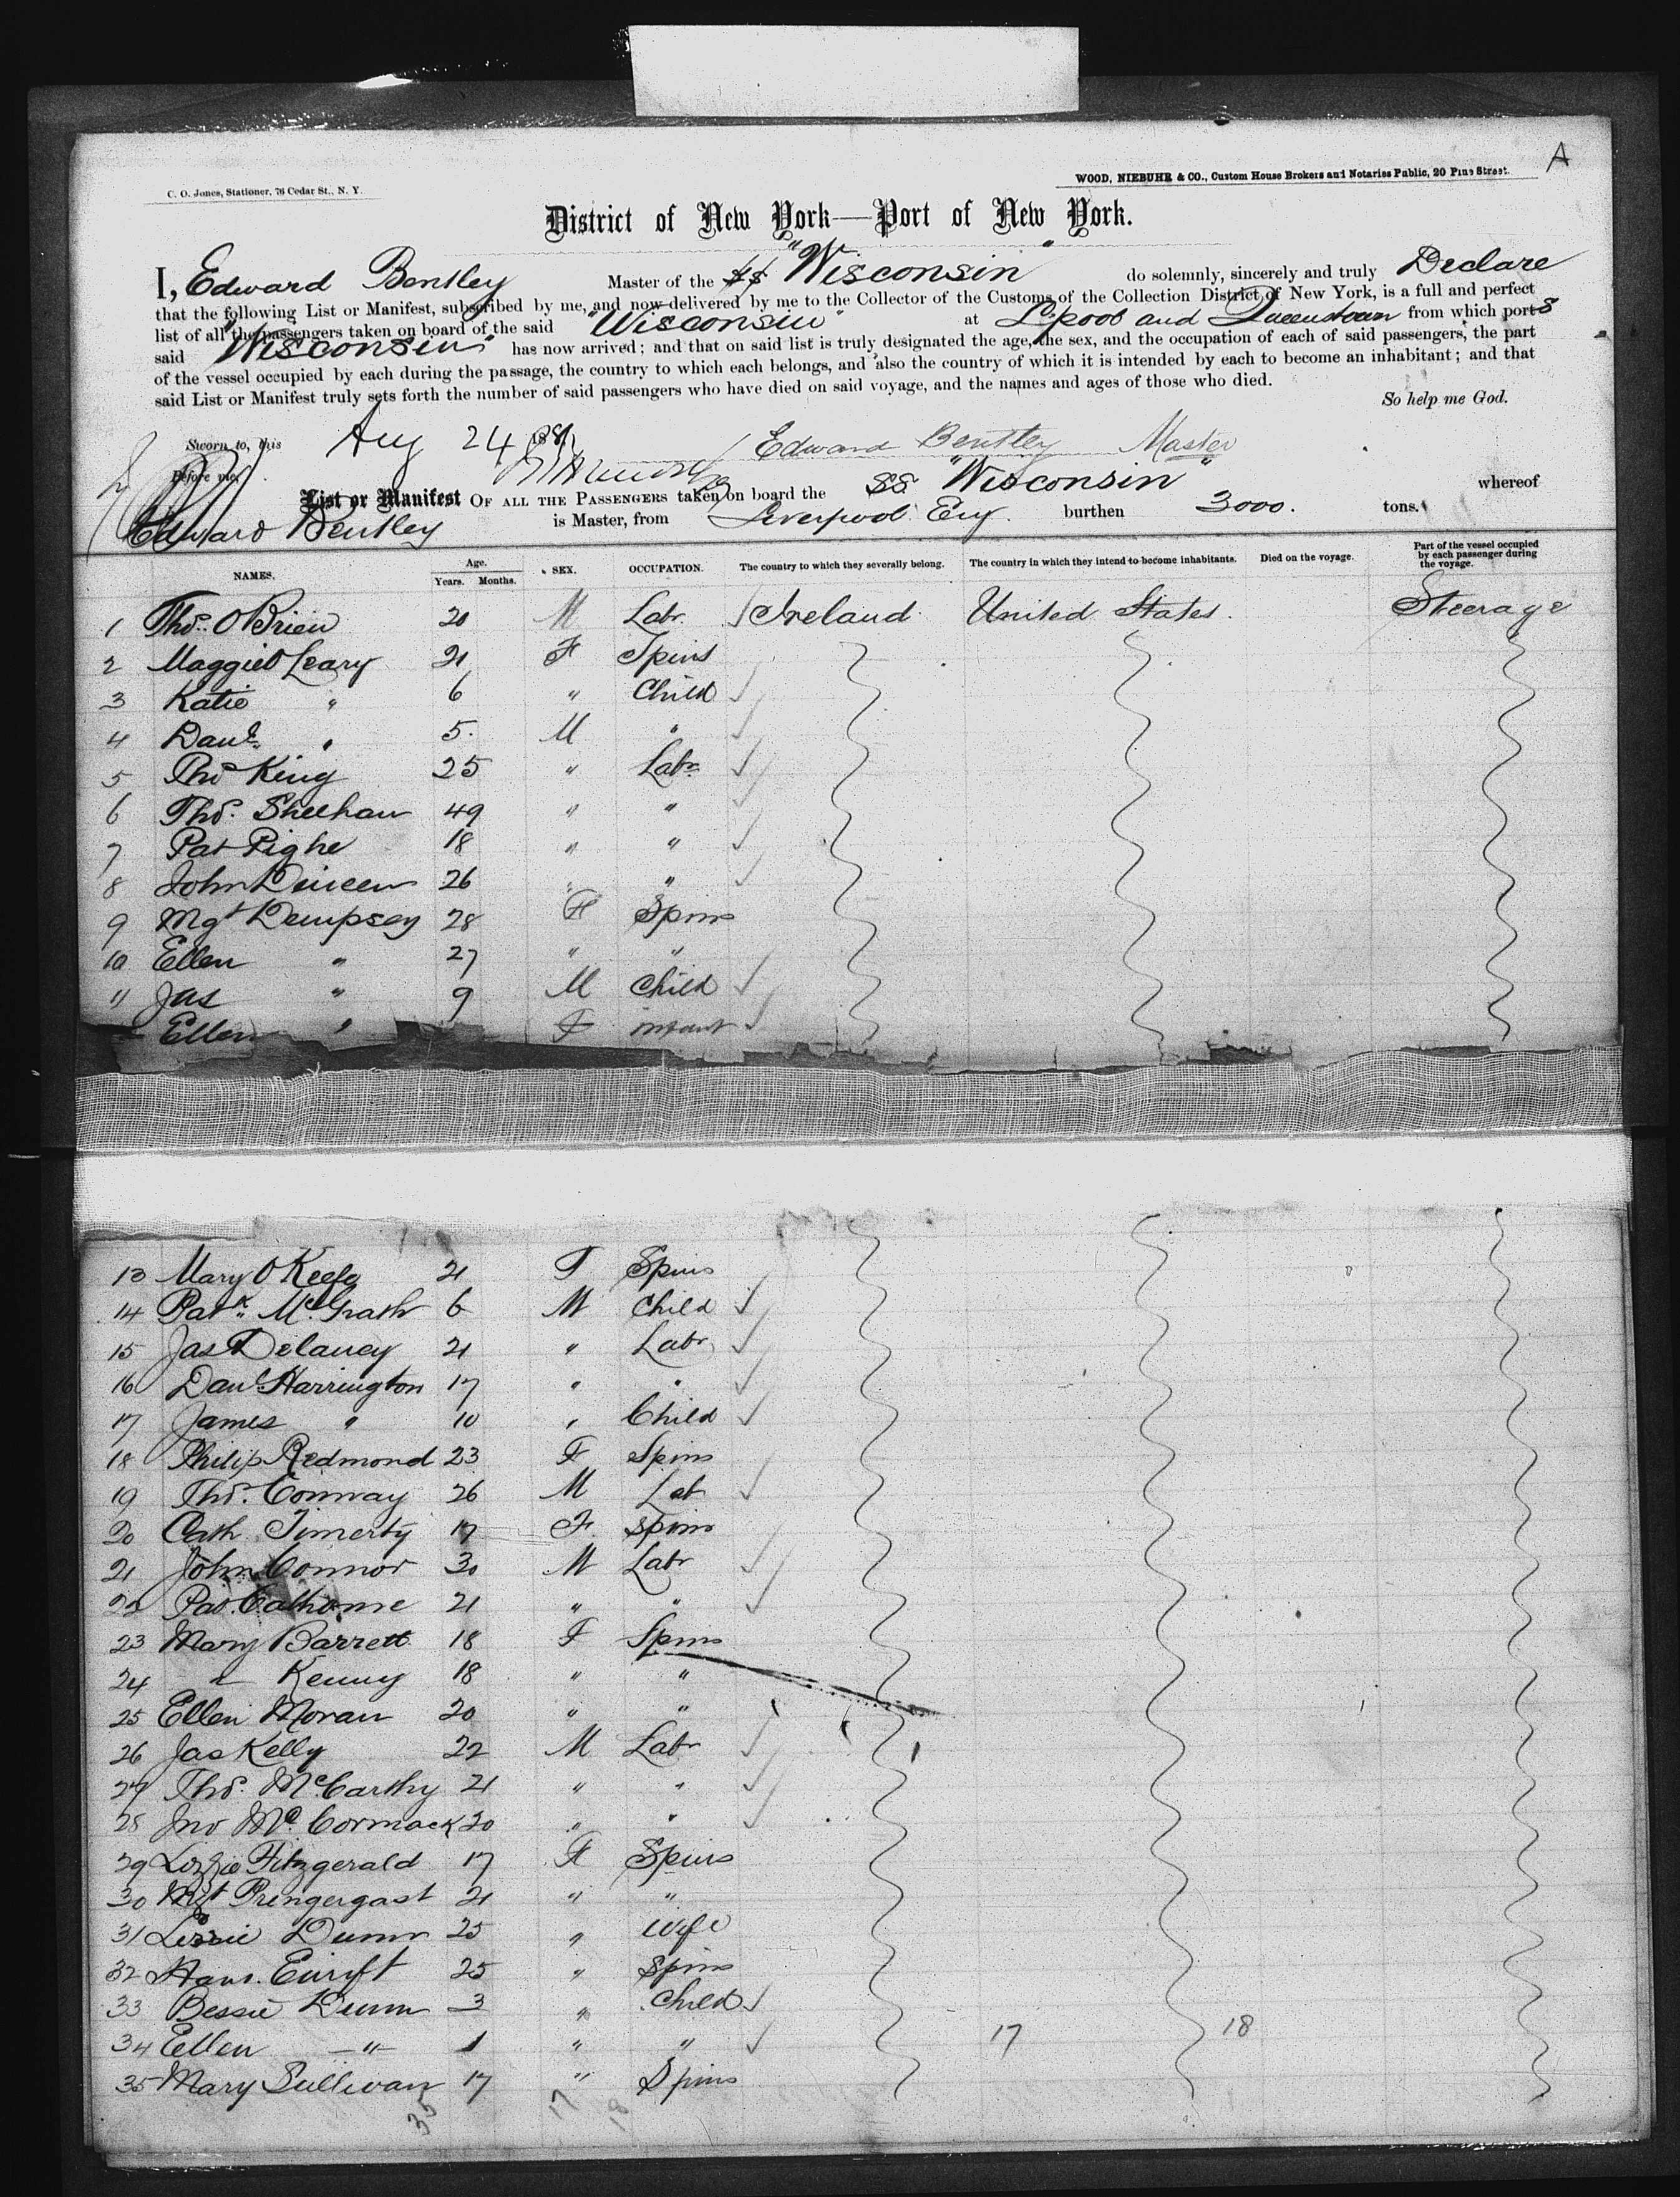 A
C. O. Jones, Stationer, 76 Cedar St., N. Y.
WOOD, NIEBUHR & CO., Custom House Brokers and Notaries Public, 20 Pine Street.
District of New York—Port of New York.
I, Edward Bentley Master of the SS "Wisconsin" do solemnly, sincerely and truly Declare
that the following List or Manifest, subscribed by me, and now delivered by me to the Collector of the Customs of the Collection District of New York, is a full and perfect
list of all the passengers taken on board of the said "Wisconsin" at L'pool and Queenstown from which ports
said "Wisconsin" has now arrived; and that on said list is truly designated the age, the sex, and the occupation of each of said passengers, the part
of the vessel occupied by each during the passage, the country to which each belongs, and also the country of which it is intended by each to become an inhabitant; and that
said List or Manifest truly sets forth the number of said passengers who have died on said voyage, and the names and ages of those who died.
So help me God.
Sworn to, this Aug 24 1881
Edward Bentley Master
Before me,
List or Manifest OF ALL THE PASSENGERS taken on board the SS "Wisconsin" whereof
Edward Bentley is Master, from Liverpool Eng. burthen 3000. tons.
NAMES. Age. Years. Months. SEX. OCCUPATION. The country to which they severally belong. The country in which they intend to become inhabitants. Died on the voyage. Part of the vessel occupied by each passenger during the voyage.
1 Thos. O'Brien 20 M Labr. Ireland United States. Steerage
2 Maggie O'Leary 21 F Spins
3 Katie " 6 " Child
4 Danl. " 5. M "
5 Thos King 25 " Labr
6 Thos. Sheehan 49 " "
7 Pat Pighe 18 " "
8 John Dineen 26 " "
9 Mgt Dempsey 28 F Spins
10 Ellen " 27 " "
11 Jas " 9 M Child
Ellen " F infant
13 Mary O'Keefe 21 F Spins
14 Patk. McGrath 6 M Child
15 Jas Delaney 21 " Labr
16 Danl. Harrington 17 " "
17 James " 10 " Child
18 Philip Redmond 23 F Spins
19 Thos. Conway 26 M Lab
20 Cath Timerty 17 F. Spins
21 John Connor 30 M Labr
22 Pat. Calhonne 21 " "
23 Mary Barrett 18 F Spins
24 " Kenny 18 " "
25 Ellen Moran 20 " "
26 Jas Kelly 22 M Labr
27 Thos. McCarthy 21 " "
28 Jno McCormack 20 " "
29 Lizzie Fitzgerald 17 F Spins
30 Mgt Prengergast 21 " "
31 Lizzie Dunn 25 " wife
32 Han. 25 " Spins
33 Bessie Dunn 3 " Child
34 Ellen — " — 1 " " 17 18
35 Mary Sullivan 17 " Spins
35 17 18